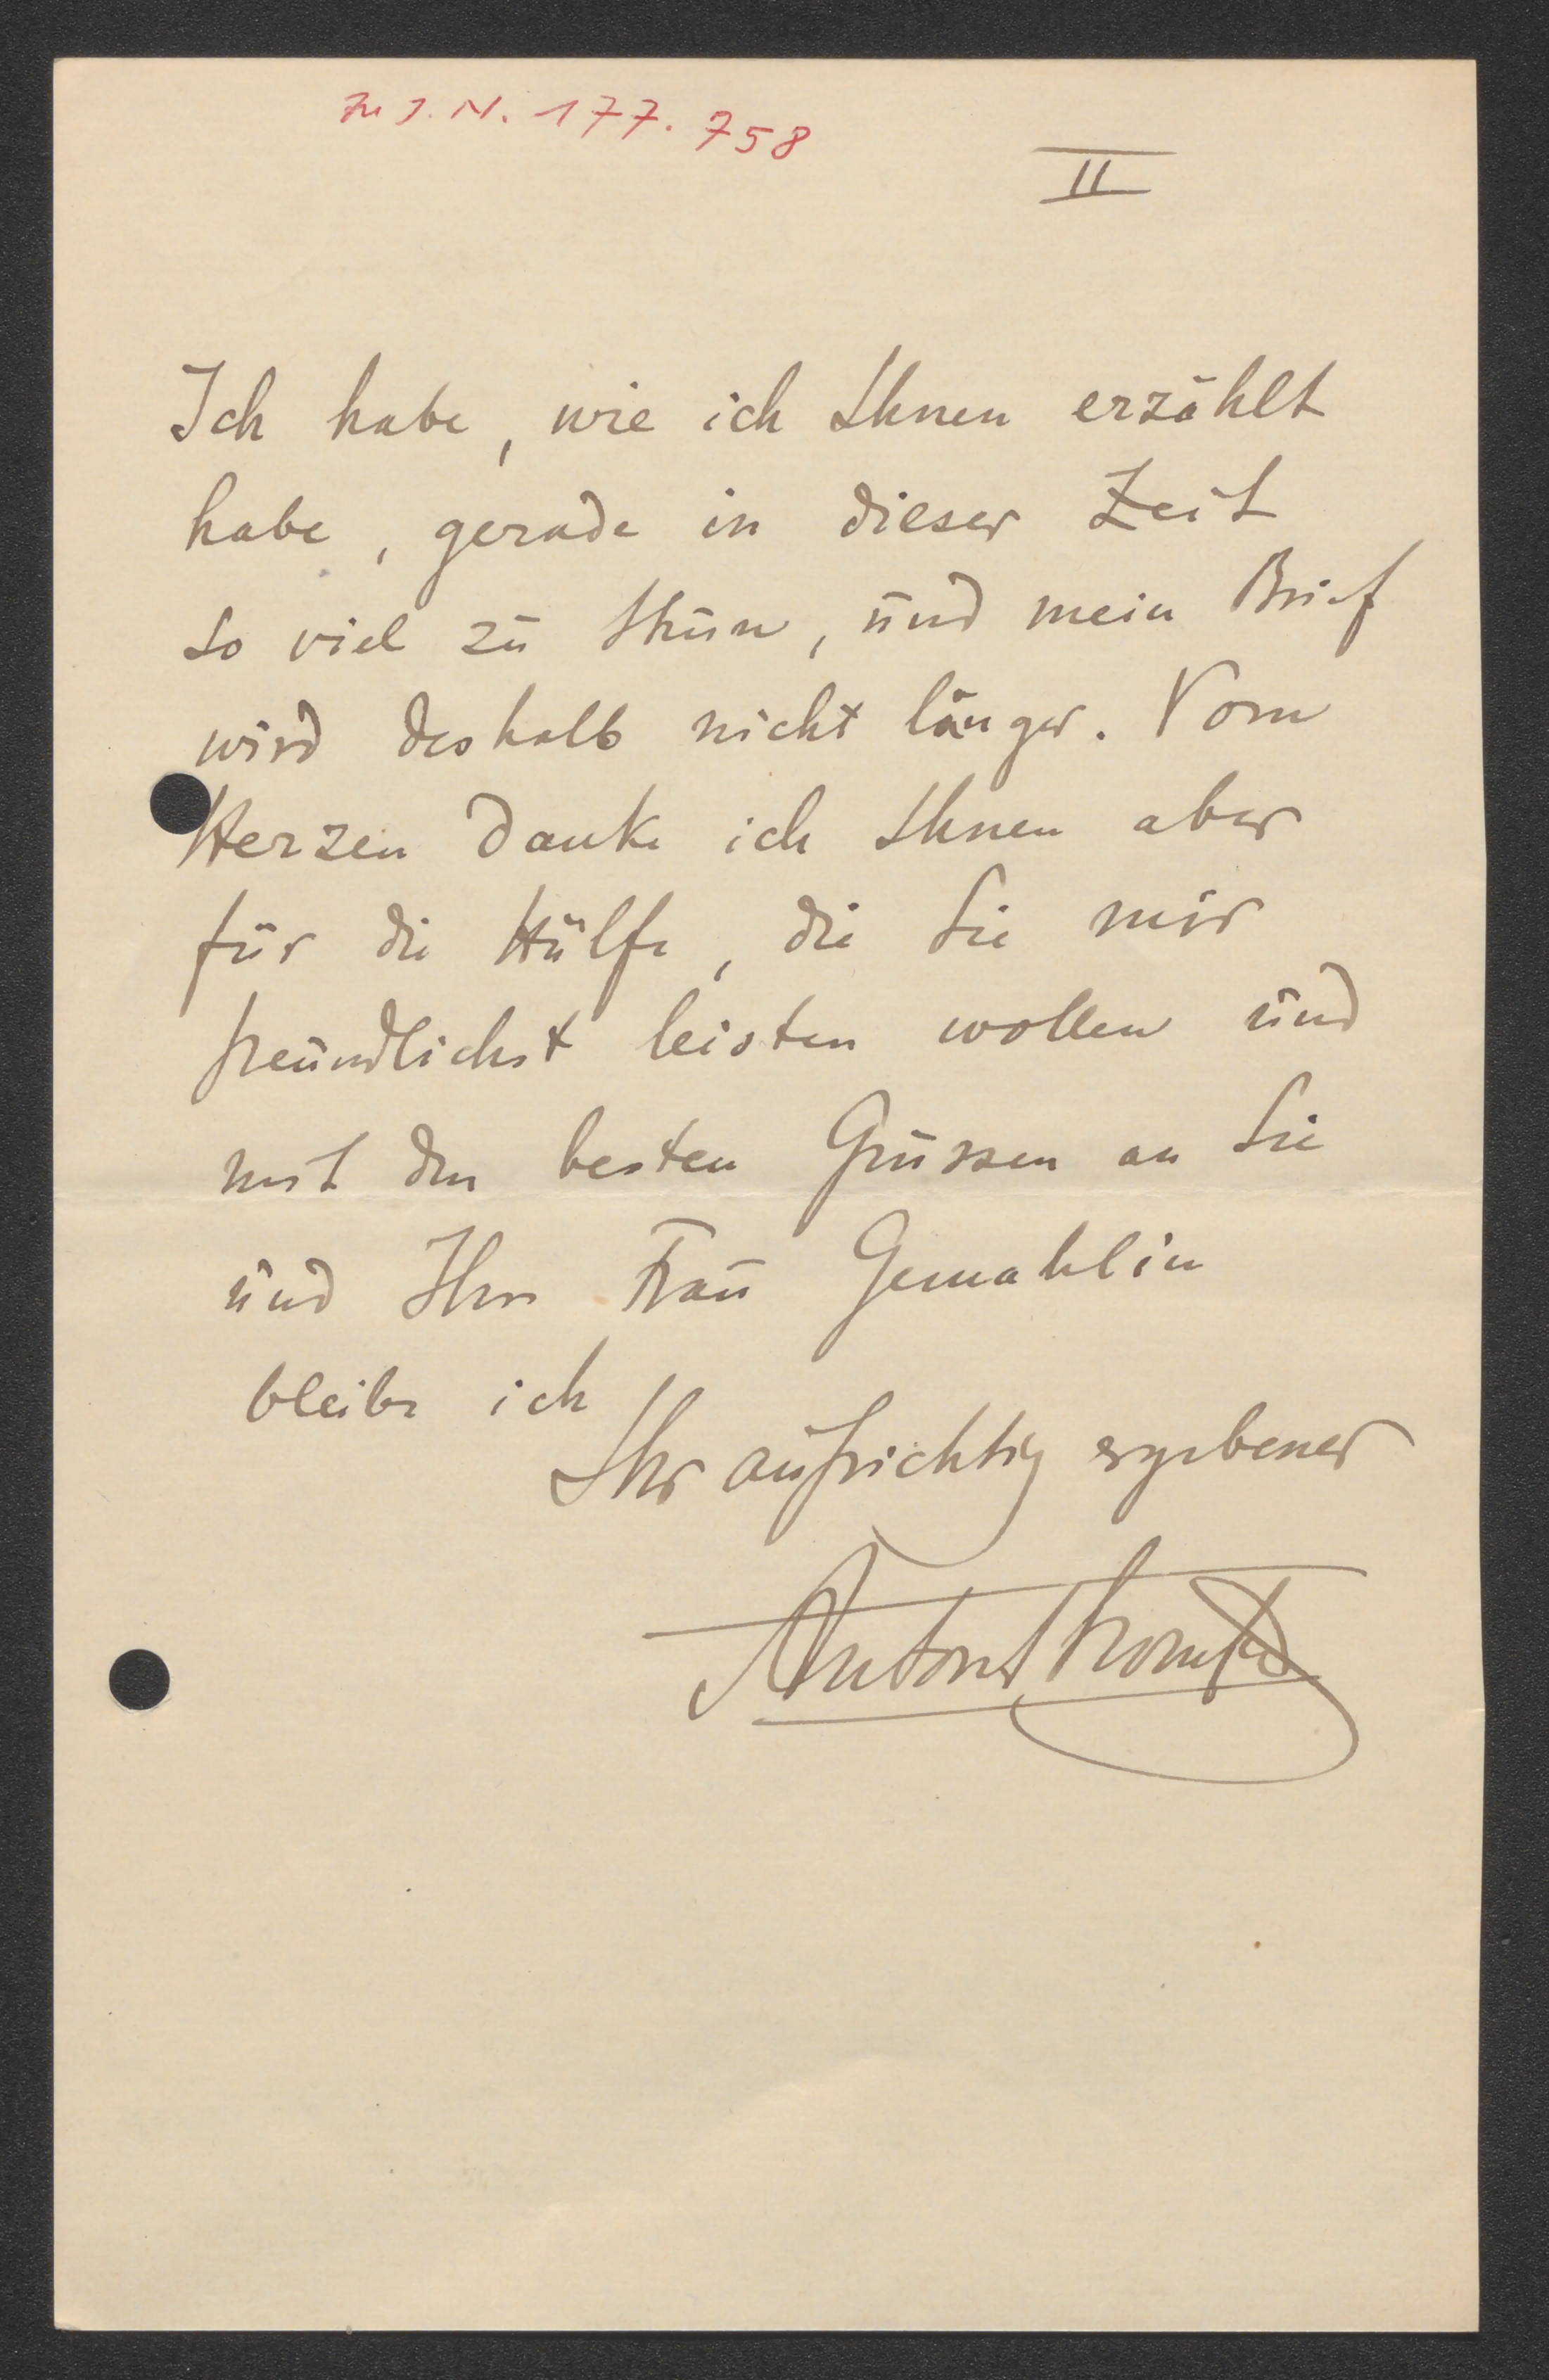 zu J. N. 177.758
II
Ich habe, wie ich Ihnen erzählt
habe, gerade in dieser Zeit
so viel zu thun, und mein Brief
wird deshalb nicht länger. Vom
Herzen danke ich Ihnen aber
für die Hülfe, die Sie mir
freundlichst leisten wollen und
mit den besten Grüssen an Sie
und Ihre Frau Gemahlin
bleibe ich
Ihr aufrichtig ergebener
Anton